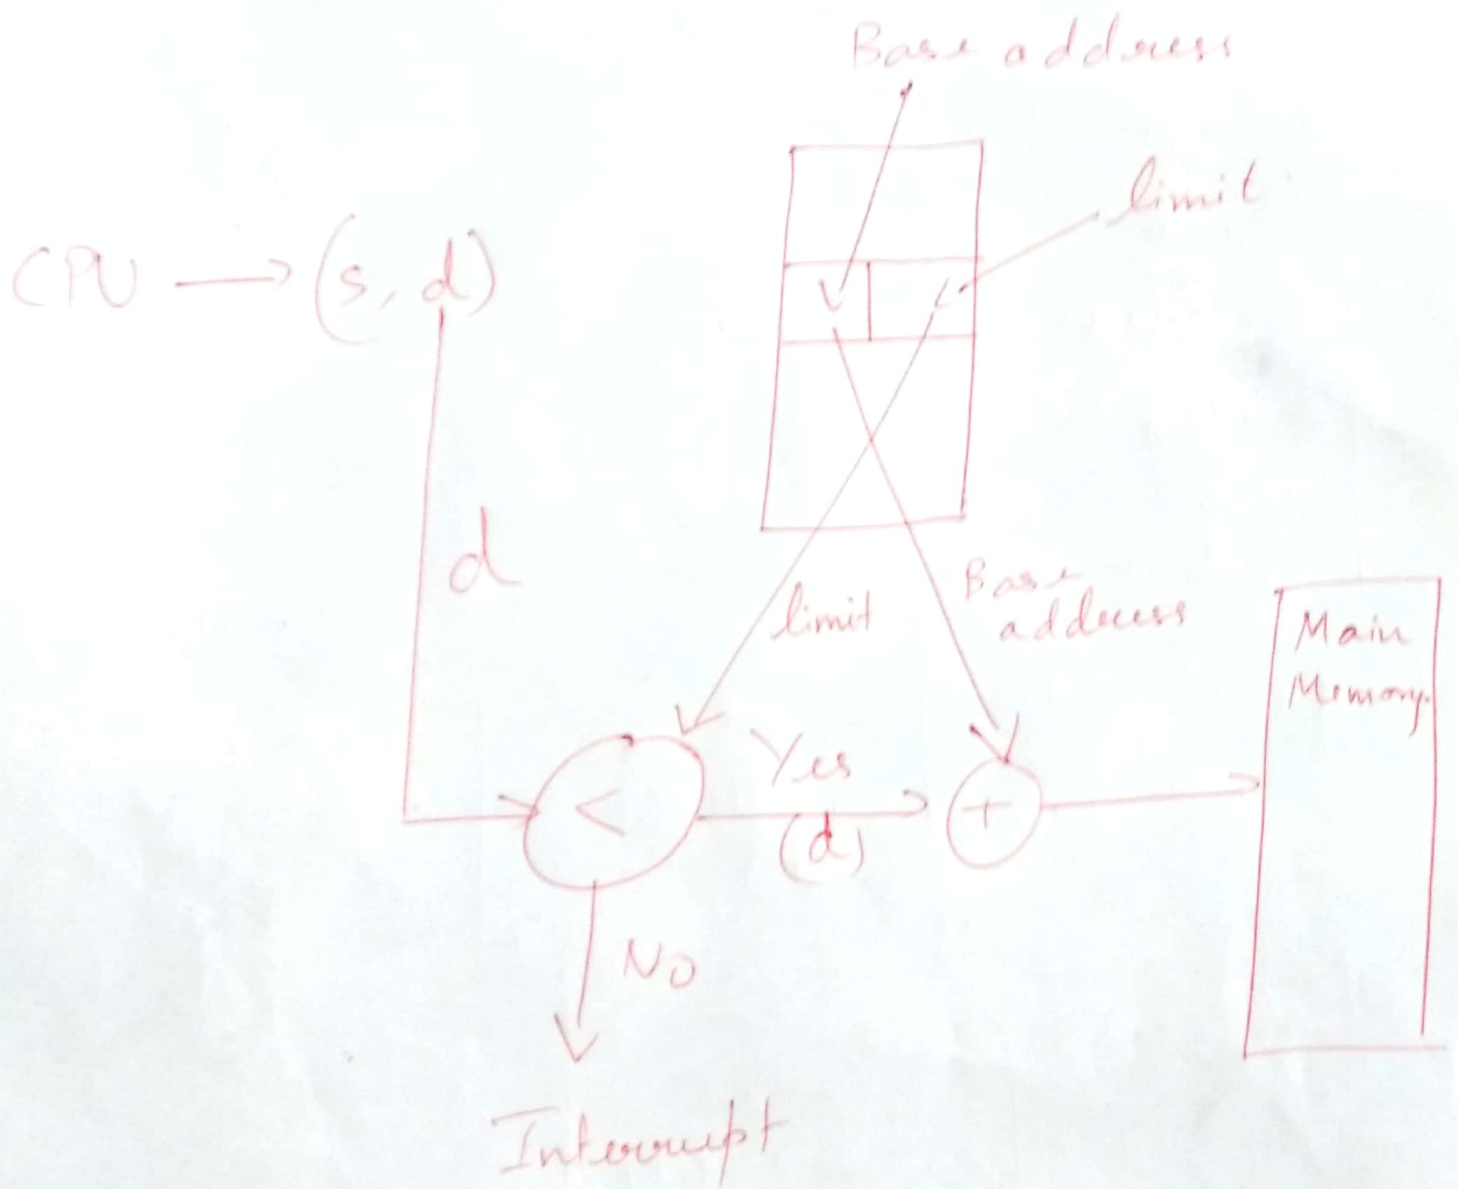 Base address
limit
CPU → (s, d)
d
limit
Base
address
Main
Memory.
Yes
<
(d)
+
No
Interrupt